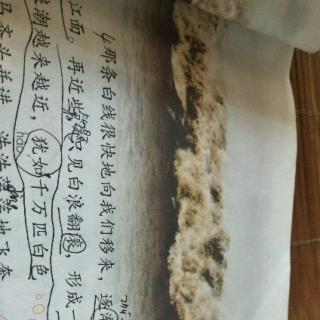 4那条白线很快地向我们移来，逐
江面。再近些，只见白浪翻滚，形成一
浪潮越来越近，犹如千万匹白色
hào
马齐头并进，浩浩荡荡地飞奔